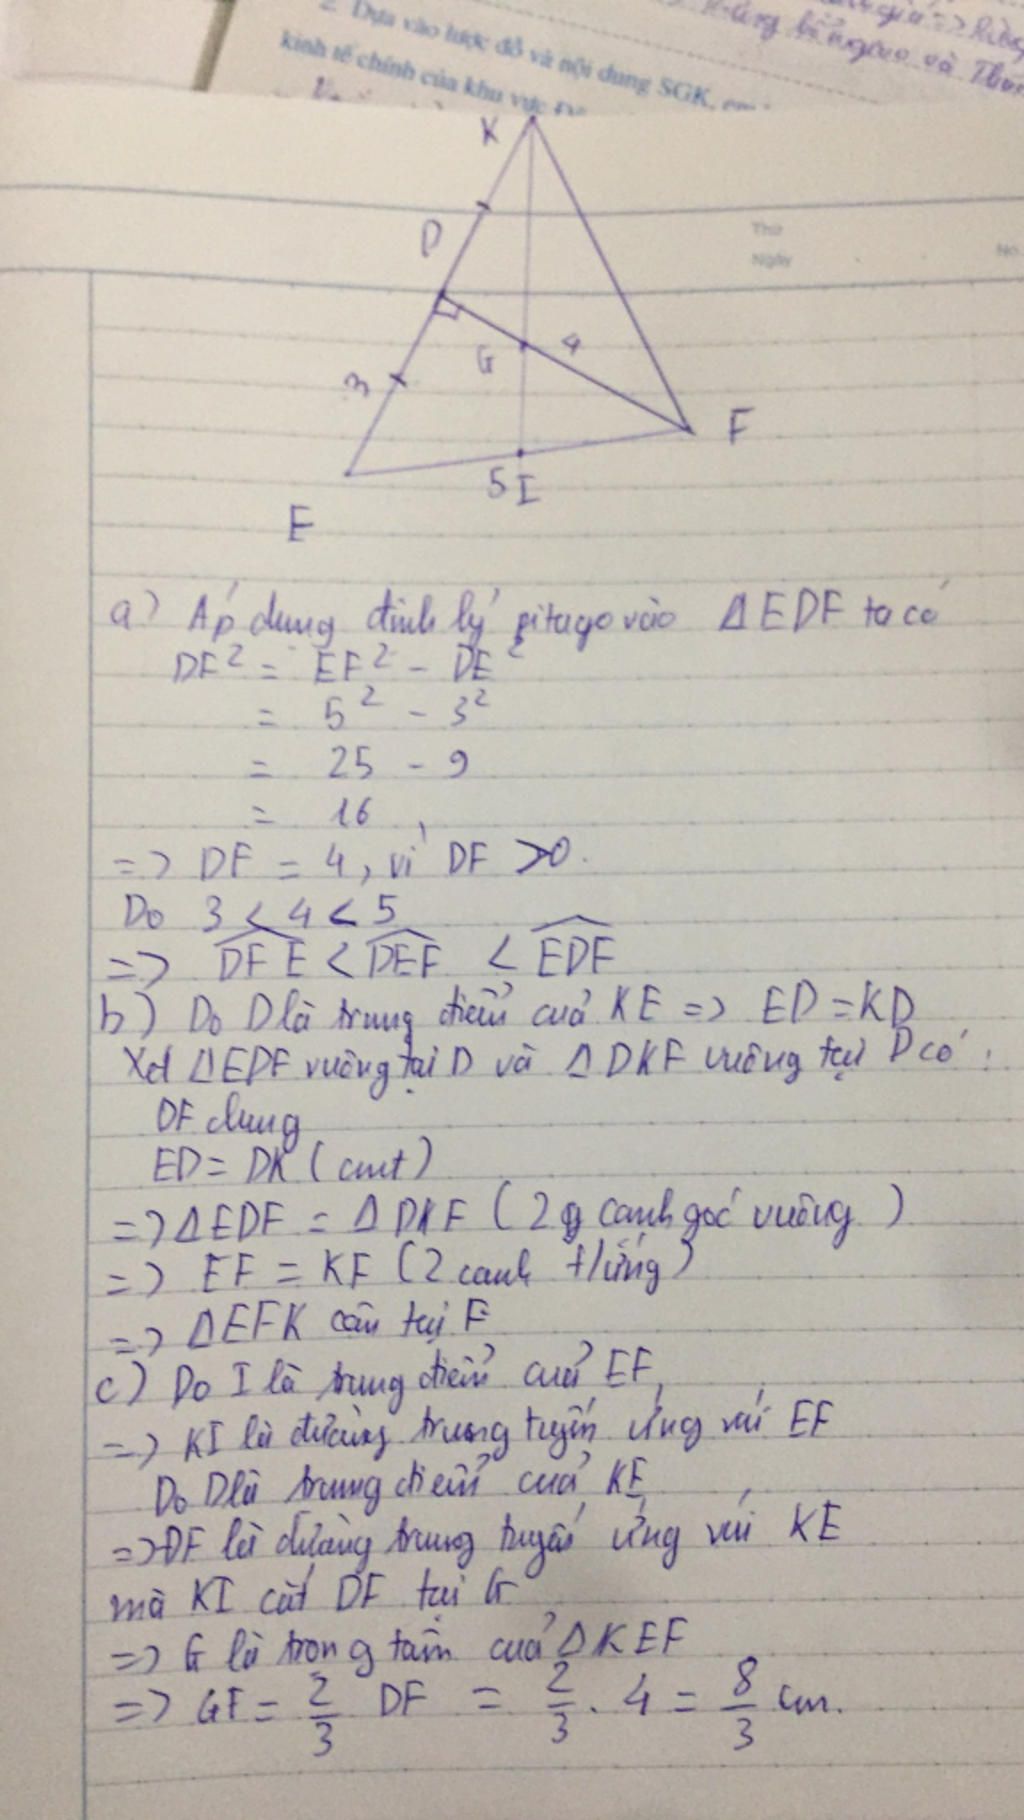 2. Dựa vào lược đồ và nội dung SGK, em
kinh tế chính của khu vực
và
K
D
Thứ
Ngày
No
G
4
3
F
5 I
E
a) Áp dung định lý pitago vào ΔEDF ta có
DF² = EF² - DE²
= 5² - 3²
= 25 - 9
= 16
=> DF = 4, vì DF >0.
Do 3 < 4 < 5
=> \widehat{DFE} < \widehat{DEF} < \widehat{EDF}
b) Do D là trung điểm của KE => ED = KD
Xét ΔEDF vuông tại D và ΔDKF vuông tại D có:
DF chung
ED = DK (cmt)
=> ΔEDF = ΔDKF (2 cạnh góc vuông)
=> EF = KF (2 cạnh t/ứng)
=> ΔEFK cân tại F
c) Do I là trung điểm của EF
=> KI là đường trung tuyến ứng với EF
Do D là trung điểm của KE
=> DF là đường trung tuyến ứng với KE
mà KI cắt DF tại G
=> G là trọng tâm của ΔKEF
=> GF = 2/3 DF = 2/3 . 4 = 8/3 cm.